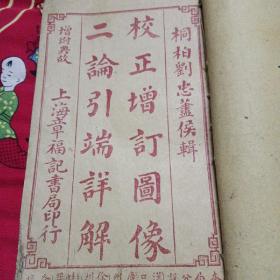 桐柏劉忠藎侯輯
校正增訂圖像
二論引端詳解
增附典故
上海章福記書局印行